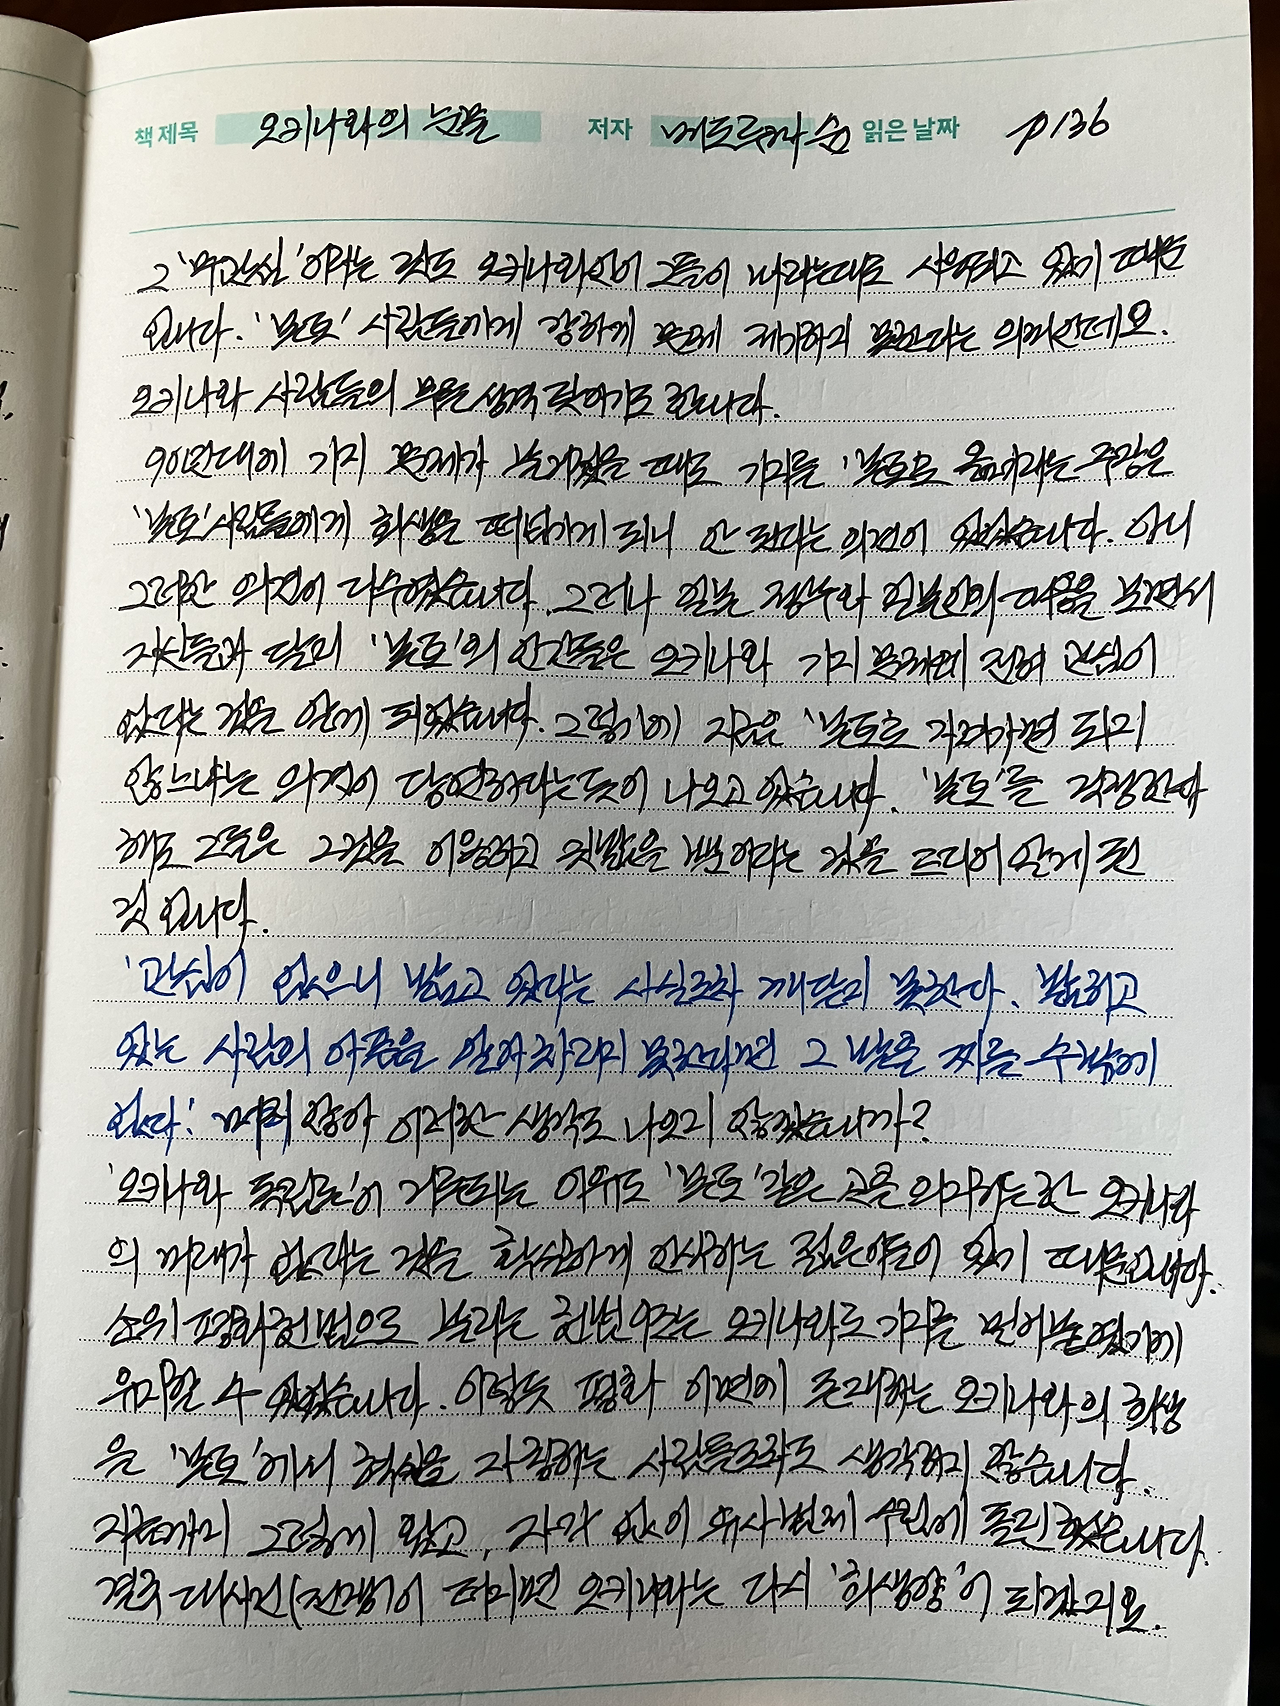 책 제목 오키나와의 눈물 저자 메도루마 슌 읽은 날짜 p136
그 '무관심'이라는 것도 오키나와인이 그들이 바라는대로 사용되고 있기 때문
입니다. '본토' 사람들에게 강하게 문제 제기하지 못한다는 의미인데요.
오키나와 사람들의 부은 생각 탓이기도 합니다.
90년대에 기지 문제가 불거졌을 때도 기지를 '본토로 옮기라는 주장은
'본토'사람들에게 희생을 떠넘기게 되니 안 된다는 의견이 있었습니다. 아니
그러한 의견이 다수였습니다. 그러나 일본 정부와 일본인의 태도를 보면서
자신들과 달리 '본토'의 인간들은 오키나와 기지 문제에 전혀 관심이
없다는 것을 알게 되었습니다. 그렇기에 지금은 '본토로 가져가면 되지
않느냐는 의견이 당연하다는듯이 나오고 있습니다. '본토'를 걱정한다
해도 그들은 그것을 이용하고 짓밟을 뿐이라는 것을 드디어 알게 된
것 입니다.
'관심이 없으니 밟고 있다는 사실조차 깨닫지 못한다. 밟히고
있는 사람의 아픔을 알아차리지 못한다면 그 발을 찌를 수밖에
없다.' 머지 않아 이러한 생각도 나오지 않겠습니까?
'오키나와 독립론'이 거론되는 이유도 '본토'같은 곳을 의지하는한 오키나와
의 미래가 없다는 것을 확실하게 인식하는 젊은이들이 있기 때문입니다.
소위 평화헌법으로 불리는 헌법 9조는 오키나와로 기지를 밀어붙였기에
유지할 수 있었습니다. 이렇듯 평화 이면에 존재하는 오키나와의 희생
은 '본토'에서 혁신을 자칭하는 사람들조차도 생각하지 않습니다.
지금까지 그렇게 왔고, 자각 없이 유사법제 수립에 돌진했습니다.
결국 대사건(전쟁)이 터지면 오키나와는 다시 '희생양'이 되겠지요.